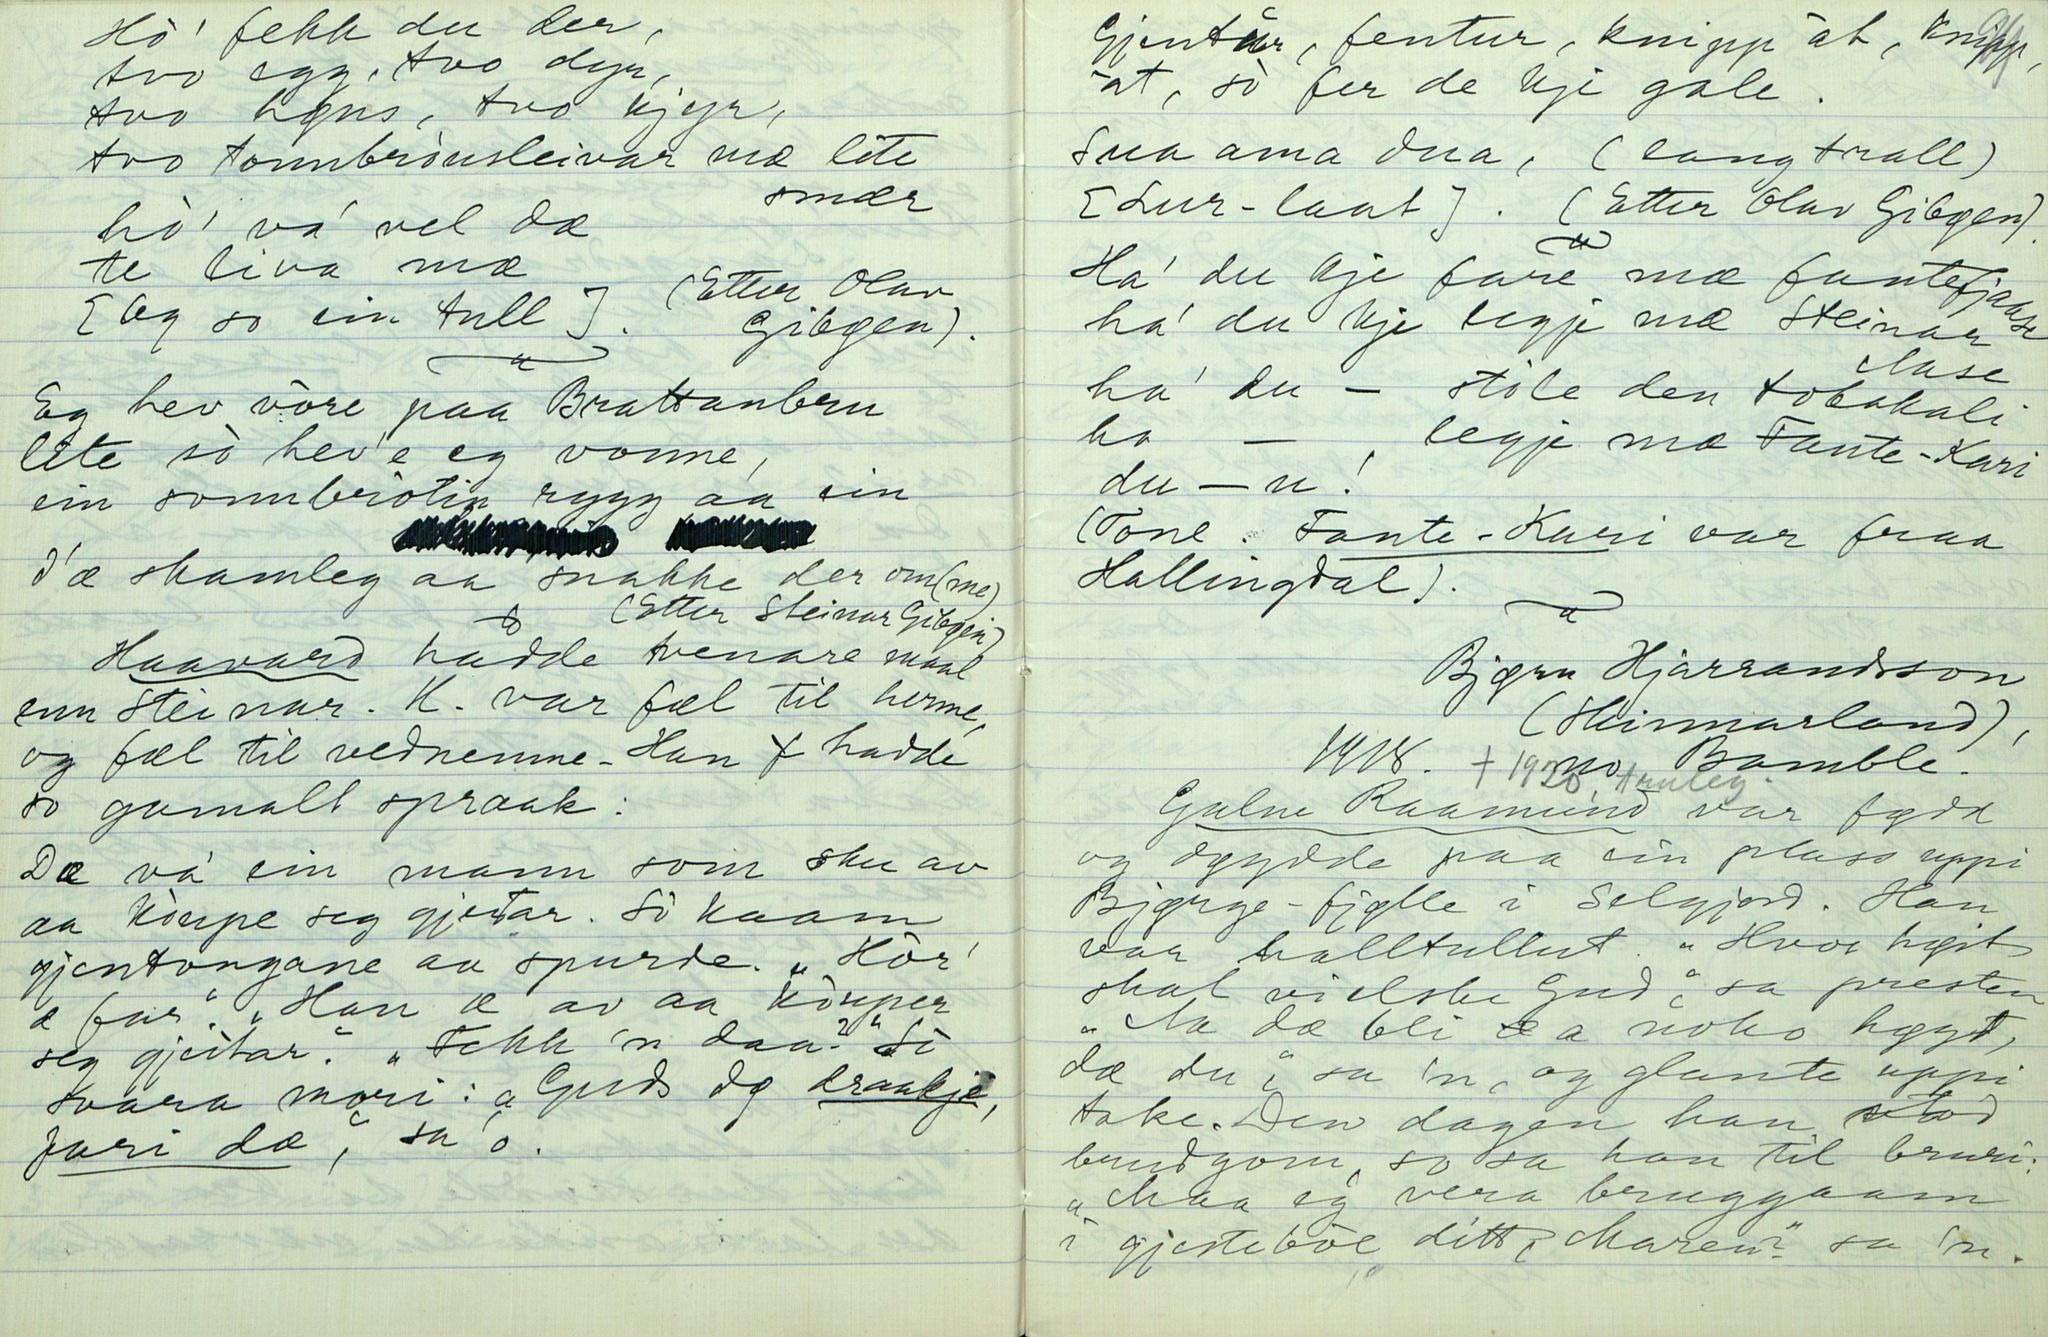 Hò' fekk du der,
tvo egg, tvo dyr,
tvo høns, tvo kjyr,
tvo tonnbrö̀usleivar mæ lite
smær
hò' vá vel dæ
te liva mæ
[Og so ein tull]. (Etter Olav
Gibøen).
Eg hev vòre paa Brattanbru
lite sò hev'e eg vonne,
ein sonnbròtin rygg aa ein
d'æ skamleg aa snakke der om (me)
(Etter Steinar Gibøen)
Haavard hadde tvenare maal
enn Steinar. H. var fæl til herme,
og fæl til vednemne. Han hadde
so gamalt spraak:
Dæ vá ein mann som sku av
aa kòupe seg gjeitar. Sò kaam
gjentongane aa spurde. „Hòr'
æ far". „Han æ av aa kòuper
seg gjeitar". „Fekk 'n daa?" Sò
svara mori: „Guds dø draakje,
fari dæ", sa 'o.
Gjentur, fentur, knipp åt, knipp
åt, sò fer de kje gale.
Sua ama dua, (lang trall)
[Lur-laat]. (Etter Olav Gibøen).
Ha' du kje fare mæ fantefjaase
ha' du kje legje mæ Steinar
Aase
ha' du — stòle den tobakali
ha — legje mæ Fante-Kari
du — u!
(Tone. Fante-Kari var fraa
Hallingdal).
Bjørn Hjarrandsson
(Skinnarland),
1918. no Bamble.
† 1920, truleg.
Galne Raamund var fødd
og døydde paa ein plass uppi
Bjørge-fjølle i Selgjord. Han
var halltullut. „Hvor høit
skal vi elske Gud", sa presten
„Aa dæ bli æ a noko høgt,
dæ du", sa 'n, og glante uppi
take. Den dagen han stod
brudgom, so sa han til bruri:
„Maa eg vera bruggaam
i gjestebòe ditt, Maren?" sa 'n.